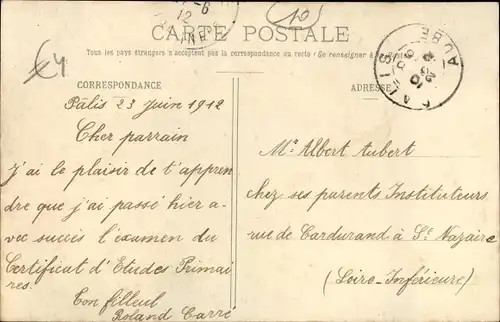 CARTE POSTALE
Tous les pays étrangers n'acceptent pas la correspondance au recto (Se renseigner à la
CORRESPONDANCE
ADRESSE
PALIS
AUBE
10
€4
Palis 23 Juin 1912
Cher parrain
J'ai le plaisir de t'appren
dre que j'ai passé hier a-
vec succès l'examen du
Certificat d'Etudes Primai
res.
Ton filleul
Roland Carré
Mr Albert Aubert
chez ses parents Instituteurs
rue de Cardurand à St Nazaire
(Loire-Inférieure)